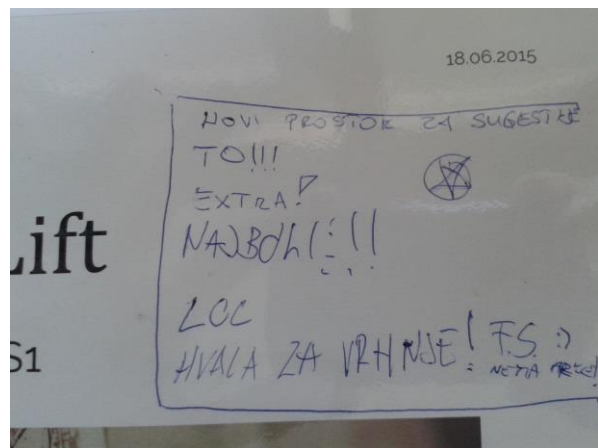 18.06.2015
NOVI PROSTOR ZA SUGESTIJE
TO!!!
EXTRA!
NAJBOLJI!!!
Lift
LCC
S1
HVALA ZA VRHNJE! F.S. :)
NEMA